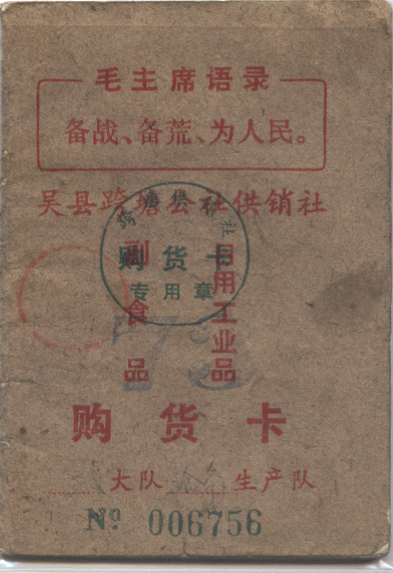 毛主席语录
备战、备荒、为人民。
吴县跨塘公社供销社
购货卡
专用章
副食品
日用工业品
购货卡
大队 生产队
№ 006756